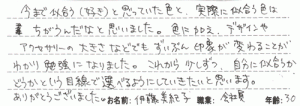 今まで似合う(好き)と思っていた色と、実際に似合う色は
ちがうんだなと思いました。色に加え、デザインや
アクセサリーの大きさなどでもずいぶん印象が変わることが
わかり勉強になりました。これから少しずつ、自分に似合うか
どうかという目線で選べるようにしていきたいと思います。
ありがとうございました お名前:伊藤美紀子 職業:会社員 年齢:30